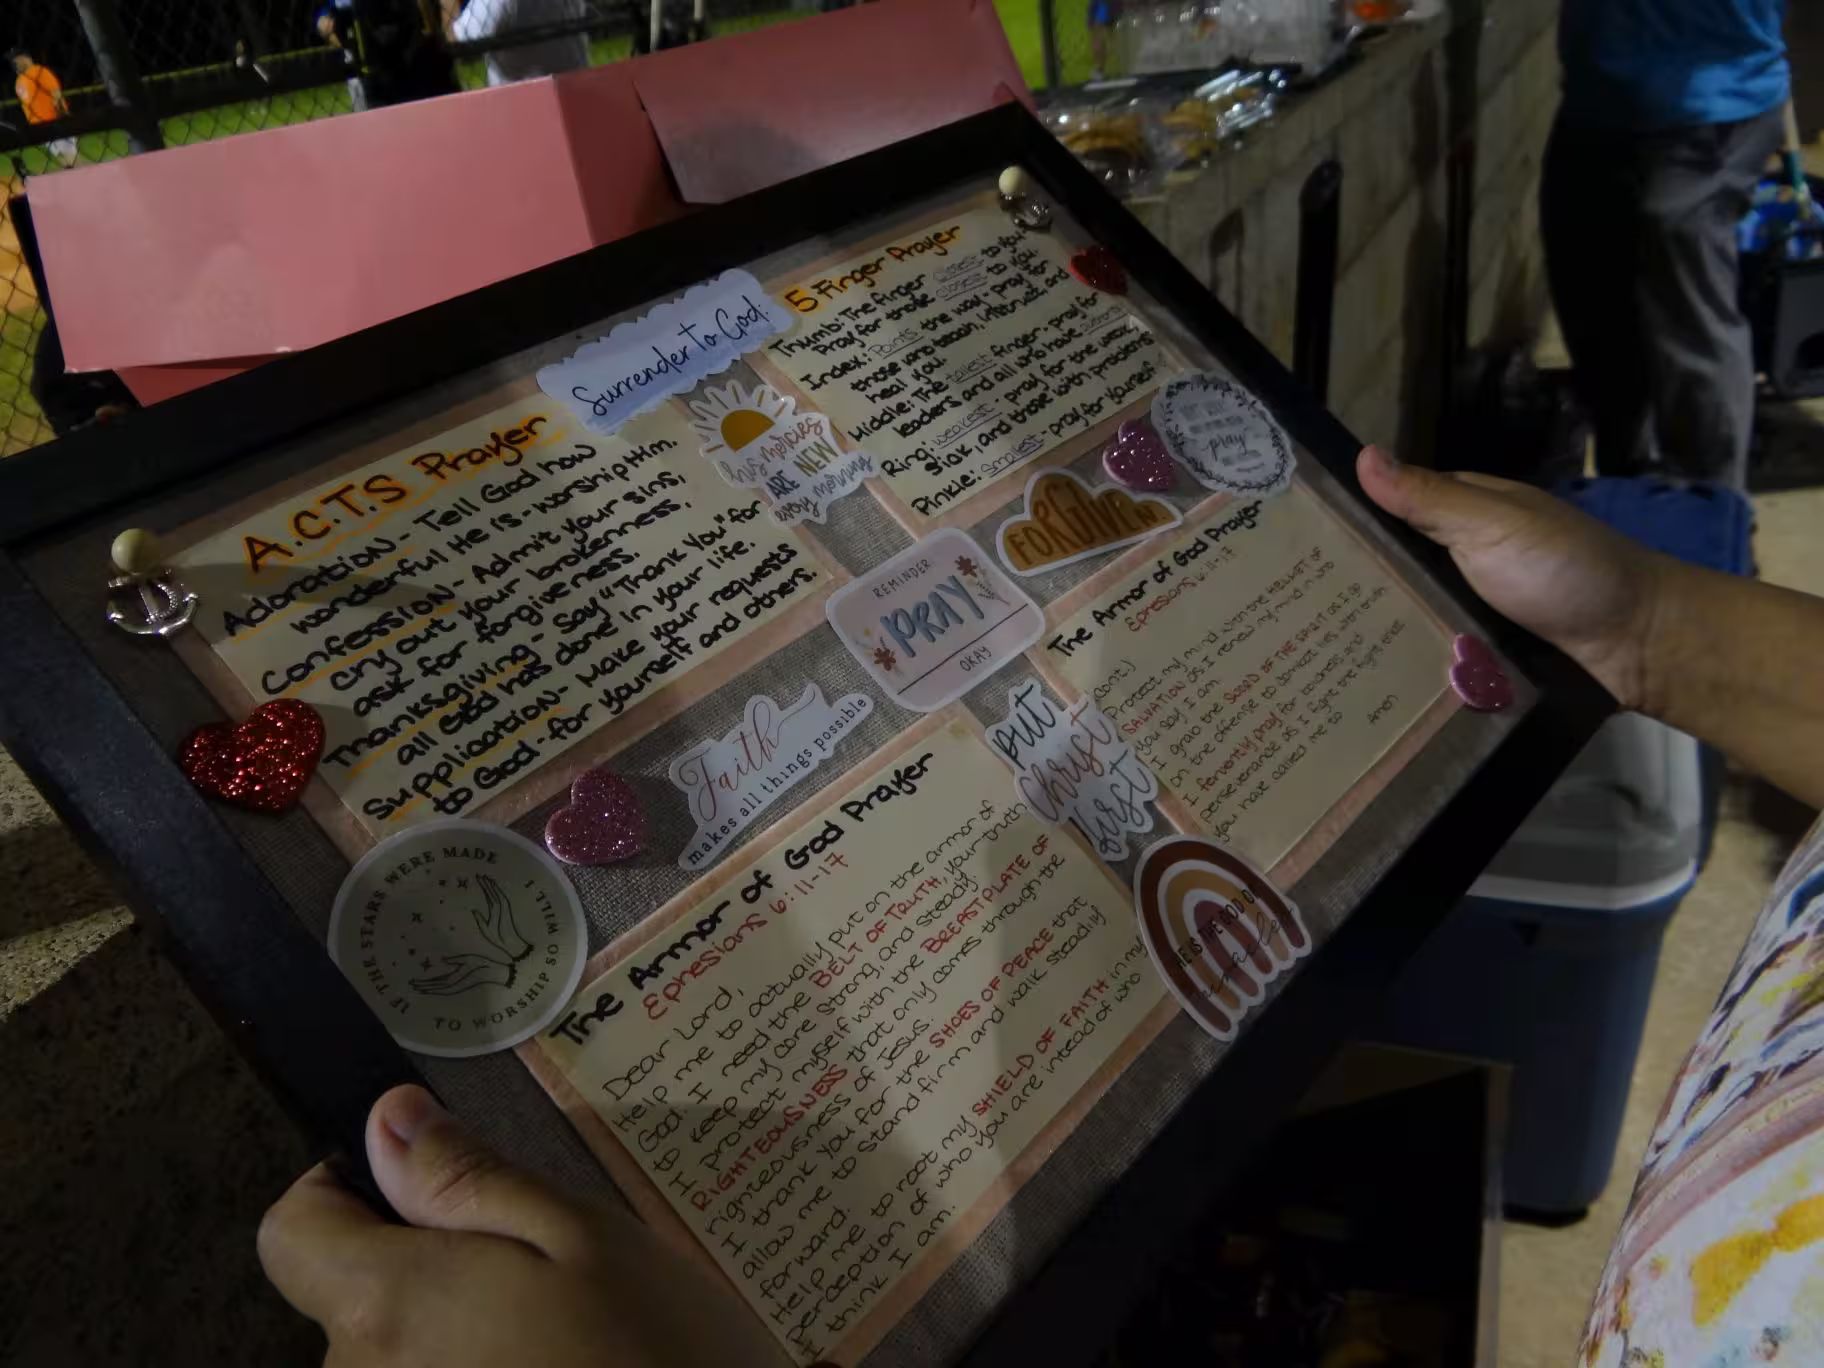 A.C.T.S Prayer
Adoration - Tell God how
wonderful He is - worship Him.
Confession - Admit your sins,
cry out your brokenness,
ask for forgiveness.
Thanksgiving - Say "Thank You" for
all God has done in your life.
Supplication - Make your requests
to God - for yourself and others.
Surrender to God.
his mercies
ARE NEW
every morning
5 Finger Prayer
Thumb: The finger closest to you
Pray for those closest to you
Index: Points the way - pray for
those who teach, instruct, and
heal you.
Middle: The tallest finger - pray for
leaders and all who have authority
Ring: weakest - pray for the weak,
sick, and those with problems
Pinkie: smallest - pray for yourself
pray
FORGIVEN
REMINDER
PRAY
OKAY
Faith
makes all things possible
put
Christ
first
IF THE STARS WERE MADE
TO WORSHIP SO WILL I
The Armor of God Prayer
Ephesians 6:11-17
Dear Lord,
Help me to actually put on the armor of
God. I need the BELT OF TRUTH, your truth
to keep my core strong, and steady.
I protect myself with the BREASTPLATE OF
RIGHTEOUSNESS that only comes through the
righteousness of Jesus.
I thank you for the SHOES OF PEACE that
allow me to stand firm and walk steadily
forward.
Help me to root my SHIELD OF FAITH in my
perception of who you are intead of who
I think I am.
The Armor of God Prayer
Ephesians 6:11-17
(cont.)
Protect my mind with the HELMET OF
SALVATION as I renew my mind in who
you say I am.
I grab the SWORD OF THE SPIRIT as I go
on the offense to combat lies with truth.
I fervently pray for boldness and
perseverance as I fight the fight that
you have called me to
Amen
HE IS THE GOD OF